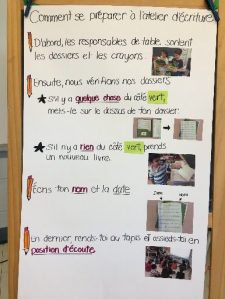 Comment se préparer à l'atelier d'écriture
D'abord, les responsables de table sortent
les dossiers et les crayons.
Ensuite, nous vérifions nos dossiers.
S'il y a quelque chose du côté vert,
mets-le sur le dessus de ton dossier.
S'il n'y a rien du côté vert, prends
un nouveau livre.
Écris ton nom et la date
En dernier rends-toi au tapis et assieds-toi en
position d'écoute.